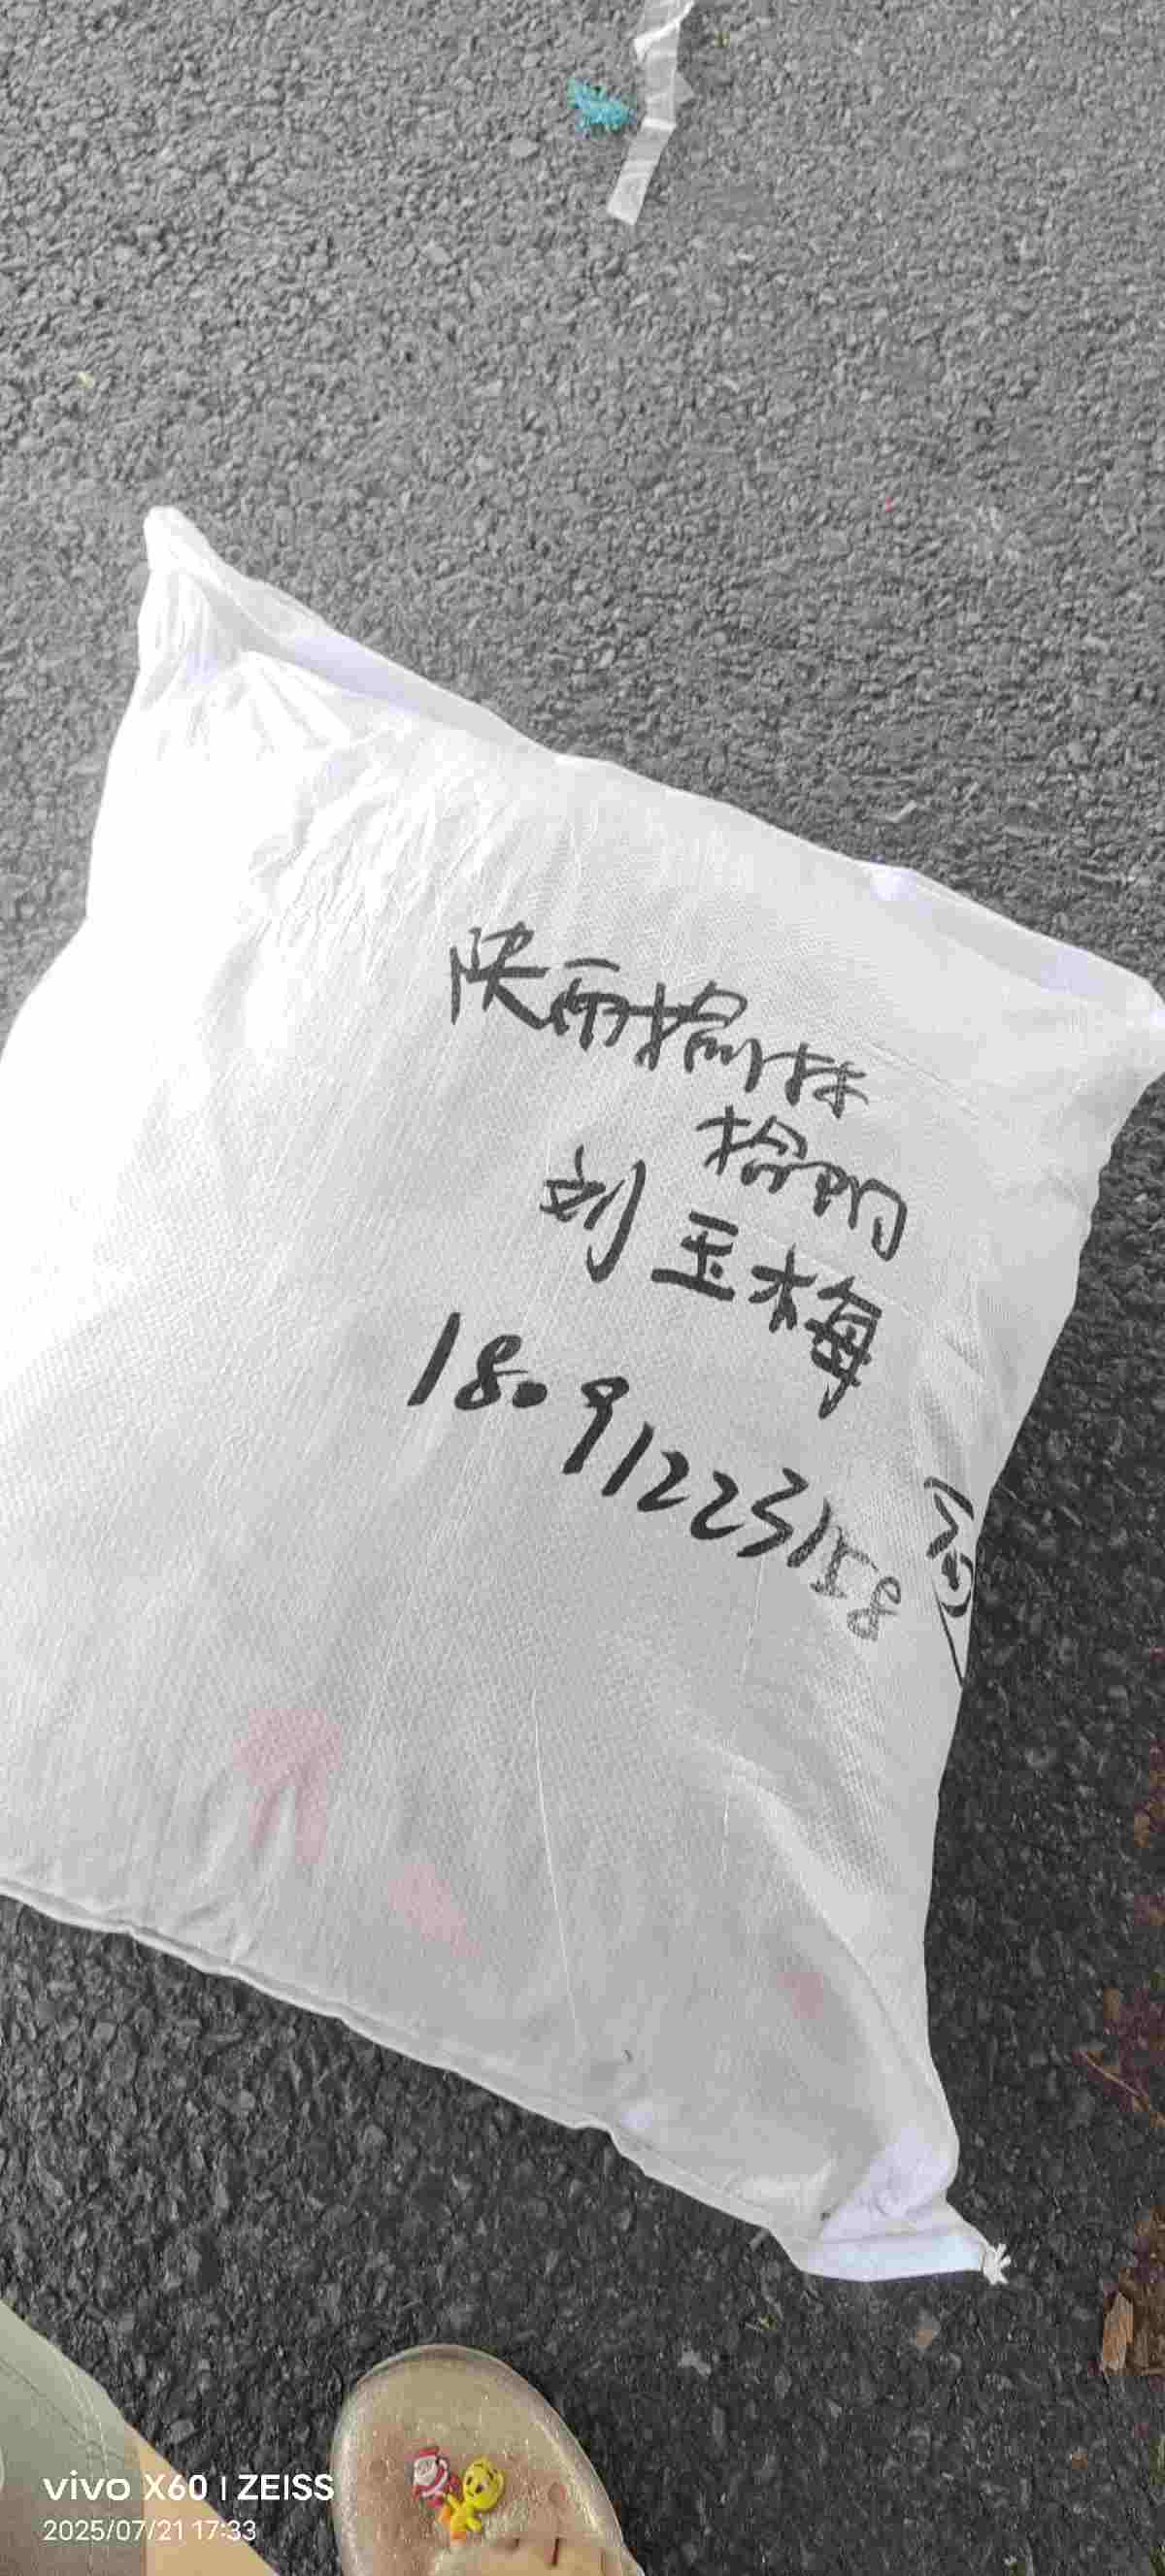 陕西榆林
榆阳
刘玉梅
18091223158
vivo X60 | ZEISS
2025/07/21 17:33